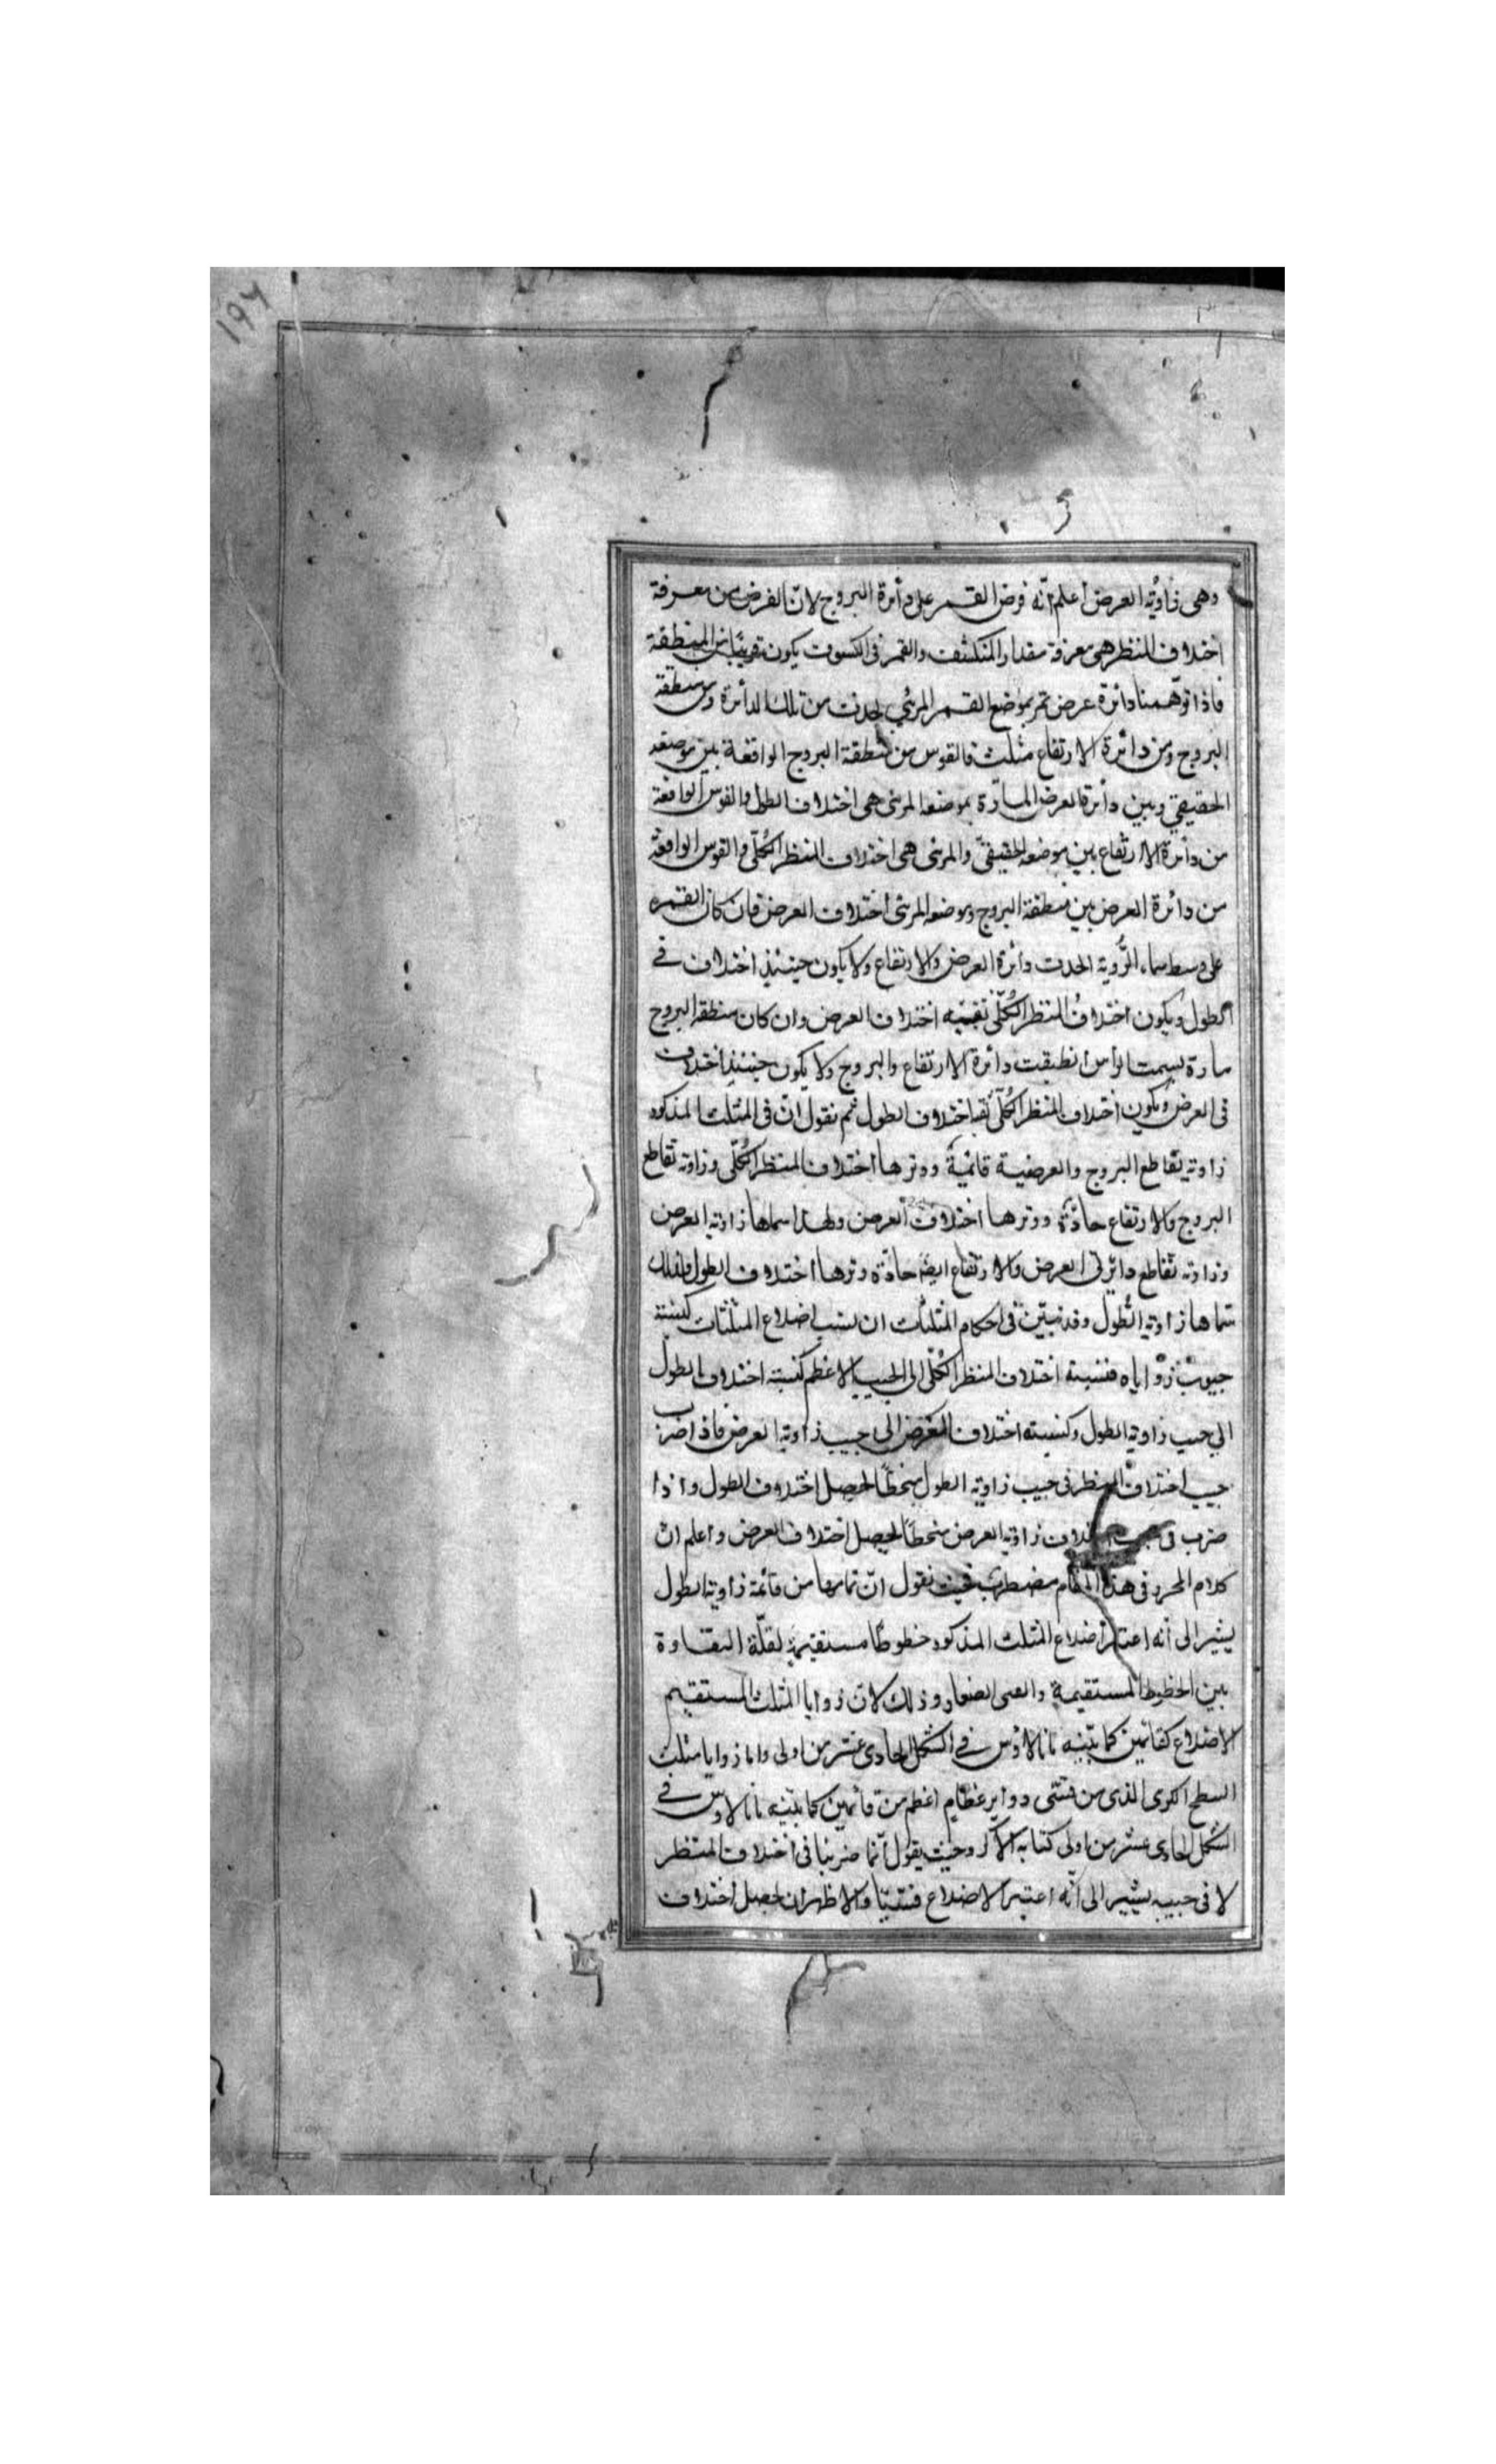 ١٩٧
وهى زاوية العرض اعلم انّه فرض القمر على دائرة البروج لانّ الغرض من معرفة
اختلاف المنظر هى معرفة مقدار المنكشف والقمر فى الكسوف يكون قريبًا من المنطقة
فاذا توهّمنا دائرة عرض تمر بموضع القمر المرئي لحدث من تلك الدائرة ومنطقة
البروج ومن دائرة الارتفاع مثلث فالقوس من منطقة البروج الواقعة بين موضعه
الحقيقي وبين دائرة العرض المارّة بموضعه المرئى هى اختلاف الطول والقوس الواقعة
من دائرة الارتفاع بين موضعه الحقيقىّ والمرئى هى اختلاف المنظر الكُلّى والقوس الواقعة
من دائرة العرض بين منطقة البروج وموضعه المرئى اختلاف العرض فان كان القمر
على وسط سماء الرُّوية اتحدت دائرة العرض والارتفاع ولا يكون حينئذٍ اختلاف فى
الطول ويكون اختلافُ المنظر الكُلّى نفسه اختلاف العرض وان كان منطقة البروج
مارة بسمت الرأس انطبقت دائرة الارتفاع والبروج ولا يكون حينئذٍ اختلاف
فى العرض ويكون اختلاف المنظر الكُلّى اختلاف الطول ثم نقول انّ فى المثلث المذكور
زاوية تقاطع البروج والعرضية قائمة ووترها اختلاف المنظر الكُلّى وزاوية تقاطع
البروج والارتفاع حادّة ووترها اختلاف العرض ولهذا سماها زاوية العرض
وزاوية تقاطع دائرتى العرض والارتفاع ايضًا حادّة وترها اختلاف الطول ولذلك
سماها زاوية الطُول وقد تبيّن فى احكام المثلثات ان نسب اضلاع المثلثات كنسبة
جيوب زواياه فنسبة اختلاف المنظر الكُلّى الى الجيب الاعظم كنسبة اختلاف الطول
الى جيب زاوية الطول وكنسبة اختلاف العرض الى جيب زاوية العرض فاذا ضرب
جيب اختلاف المنظر فى جيب زاوية الطول منحطًا لحصل اختلاف الطول واذا
ضرب فى زاوية العرض منحطًا لحصل اختلاف العرض واعلم انّ
كلام المحرر فى هذا المقام مضطرب فحيث نقول انّ تمامها من قائمة زاوية الطول
يشير الى أنه اعتبر أضلاع المثلث المذكور خطوطًا مستقيمة لقلّة التفاوة
بين الخطوط المستقيمة والقسى الصغار وذلك لانّ زوايا المثلث المستقيم
الاضلاع كقائمين كما بيّنه مانالاوس فى الشكل الحادى عشر من اولى واما زوايا مثلث
السطح الكرى الذى من قسى دواير عظام اعظم من قائمين كما بيّنه مانالاوس فى
الشكل الحادى عشر من اولى كتابه الاكر وحيث يقول انّما ضربنا فى اختلاف المنظر
لا فى جيبه يشير الى انّه اعتبر الاضلاع قسيًّا والاظهر ان لحصل اختلاف